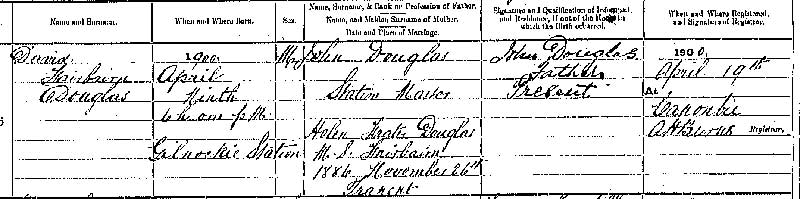 Name and Surname.
When and Where Born.
Sex.
Name, Surname, & Rank or Profession of Father.
Name, and Maiden Surname of Mother.
Date and Place of Marriage.
Signature and Qualification of Informant,
and Residence, if out of the House in
which the Birth occurred.
When and Where Registered,
and Signature of Registrar.
David
Fairbairn
Douglas
1900
April
Ninth
6 h. 0 m. p M.
Gilnockie Station
M
John Douglas
Station Master
Helen Douglas
M. S. Fairbairn
1886 November 26th
Tranent
John Douglas
Father
Present
1900,
April 19th
At
Canonbie
Registrar.